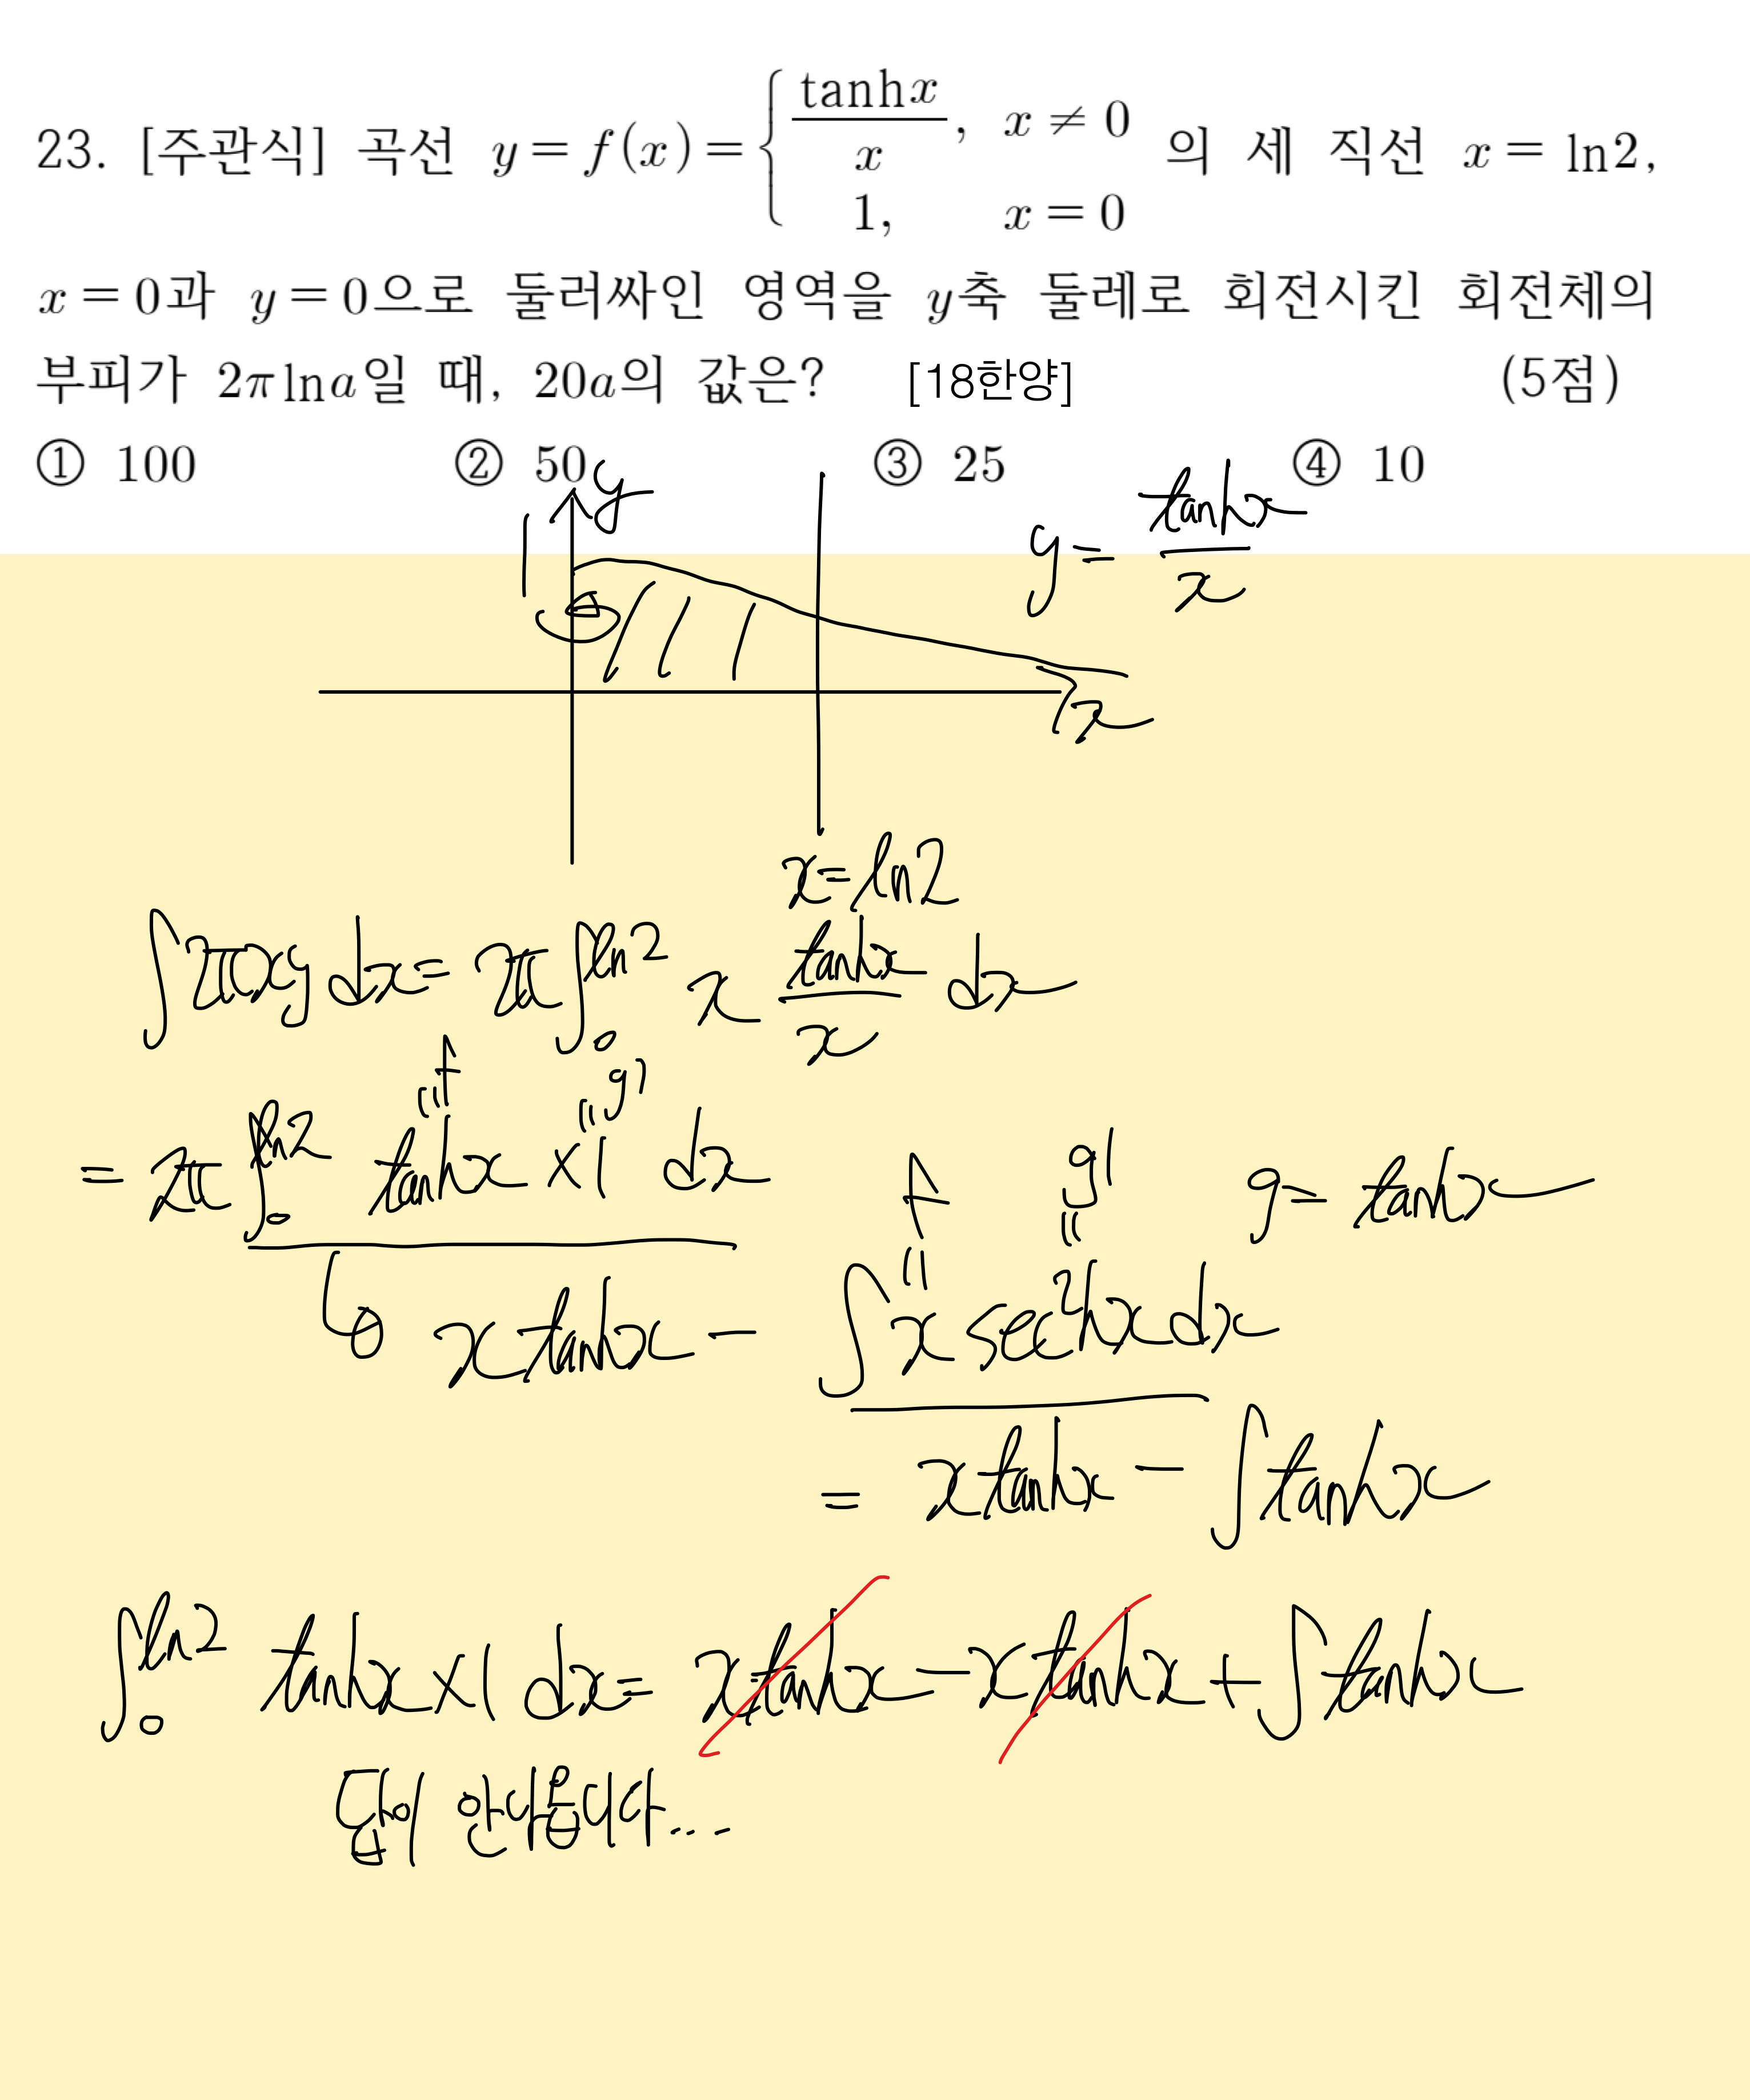 23. [주관식] 곡선 y = f(x) = { tanhx/x, x ≠ 0 의 세 직선 x = ln2,
1, x = 0
x = 0과 y = 0으로 둘러싸인 영역을 y축 둘레로 회전시킨 회전체의
부피가 2πlna일 때, 20a의 값은? [18한양] (5점)
① 100 ② 50 ③ 25 ④ 10
1 y
y = tanhx/x
x
x = ln2
∫2πxy dx = 2π∫₀^ln2 x tanhx/x dx
=f =g'
= 2π∫₀^ln2 tanhx × 1 dx
f = g' = g = tanhx
↳ x tanhx − ∫x sec²hx dx
= x tanhx − ∫tanhx
∫₀^ln2 tanhx × 1 dx = x tanhx − x tanhx + ∫tanhx
답이 안나옵니다...